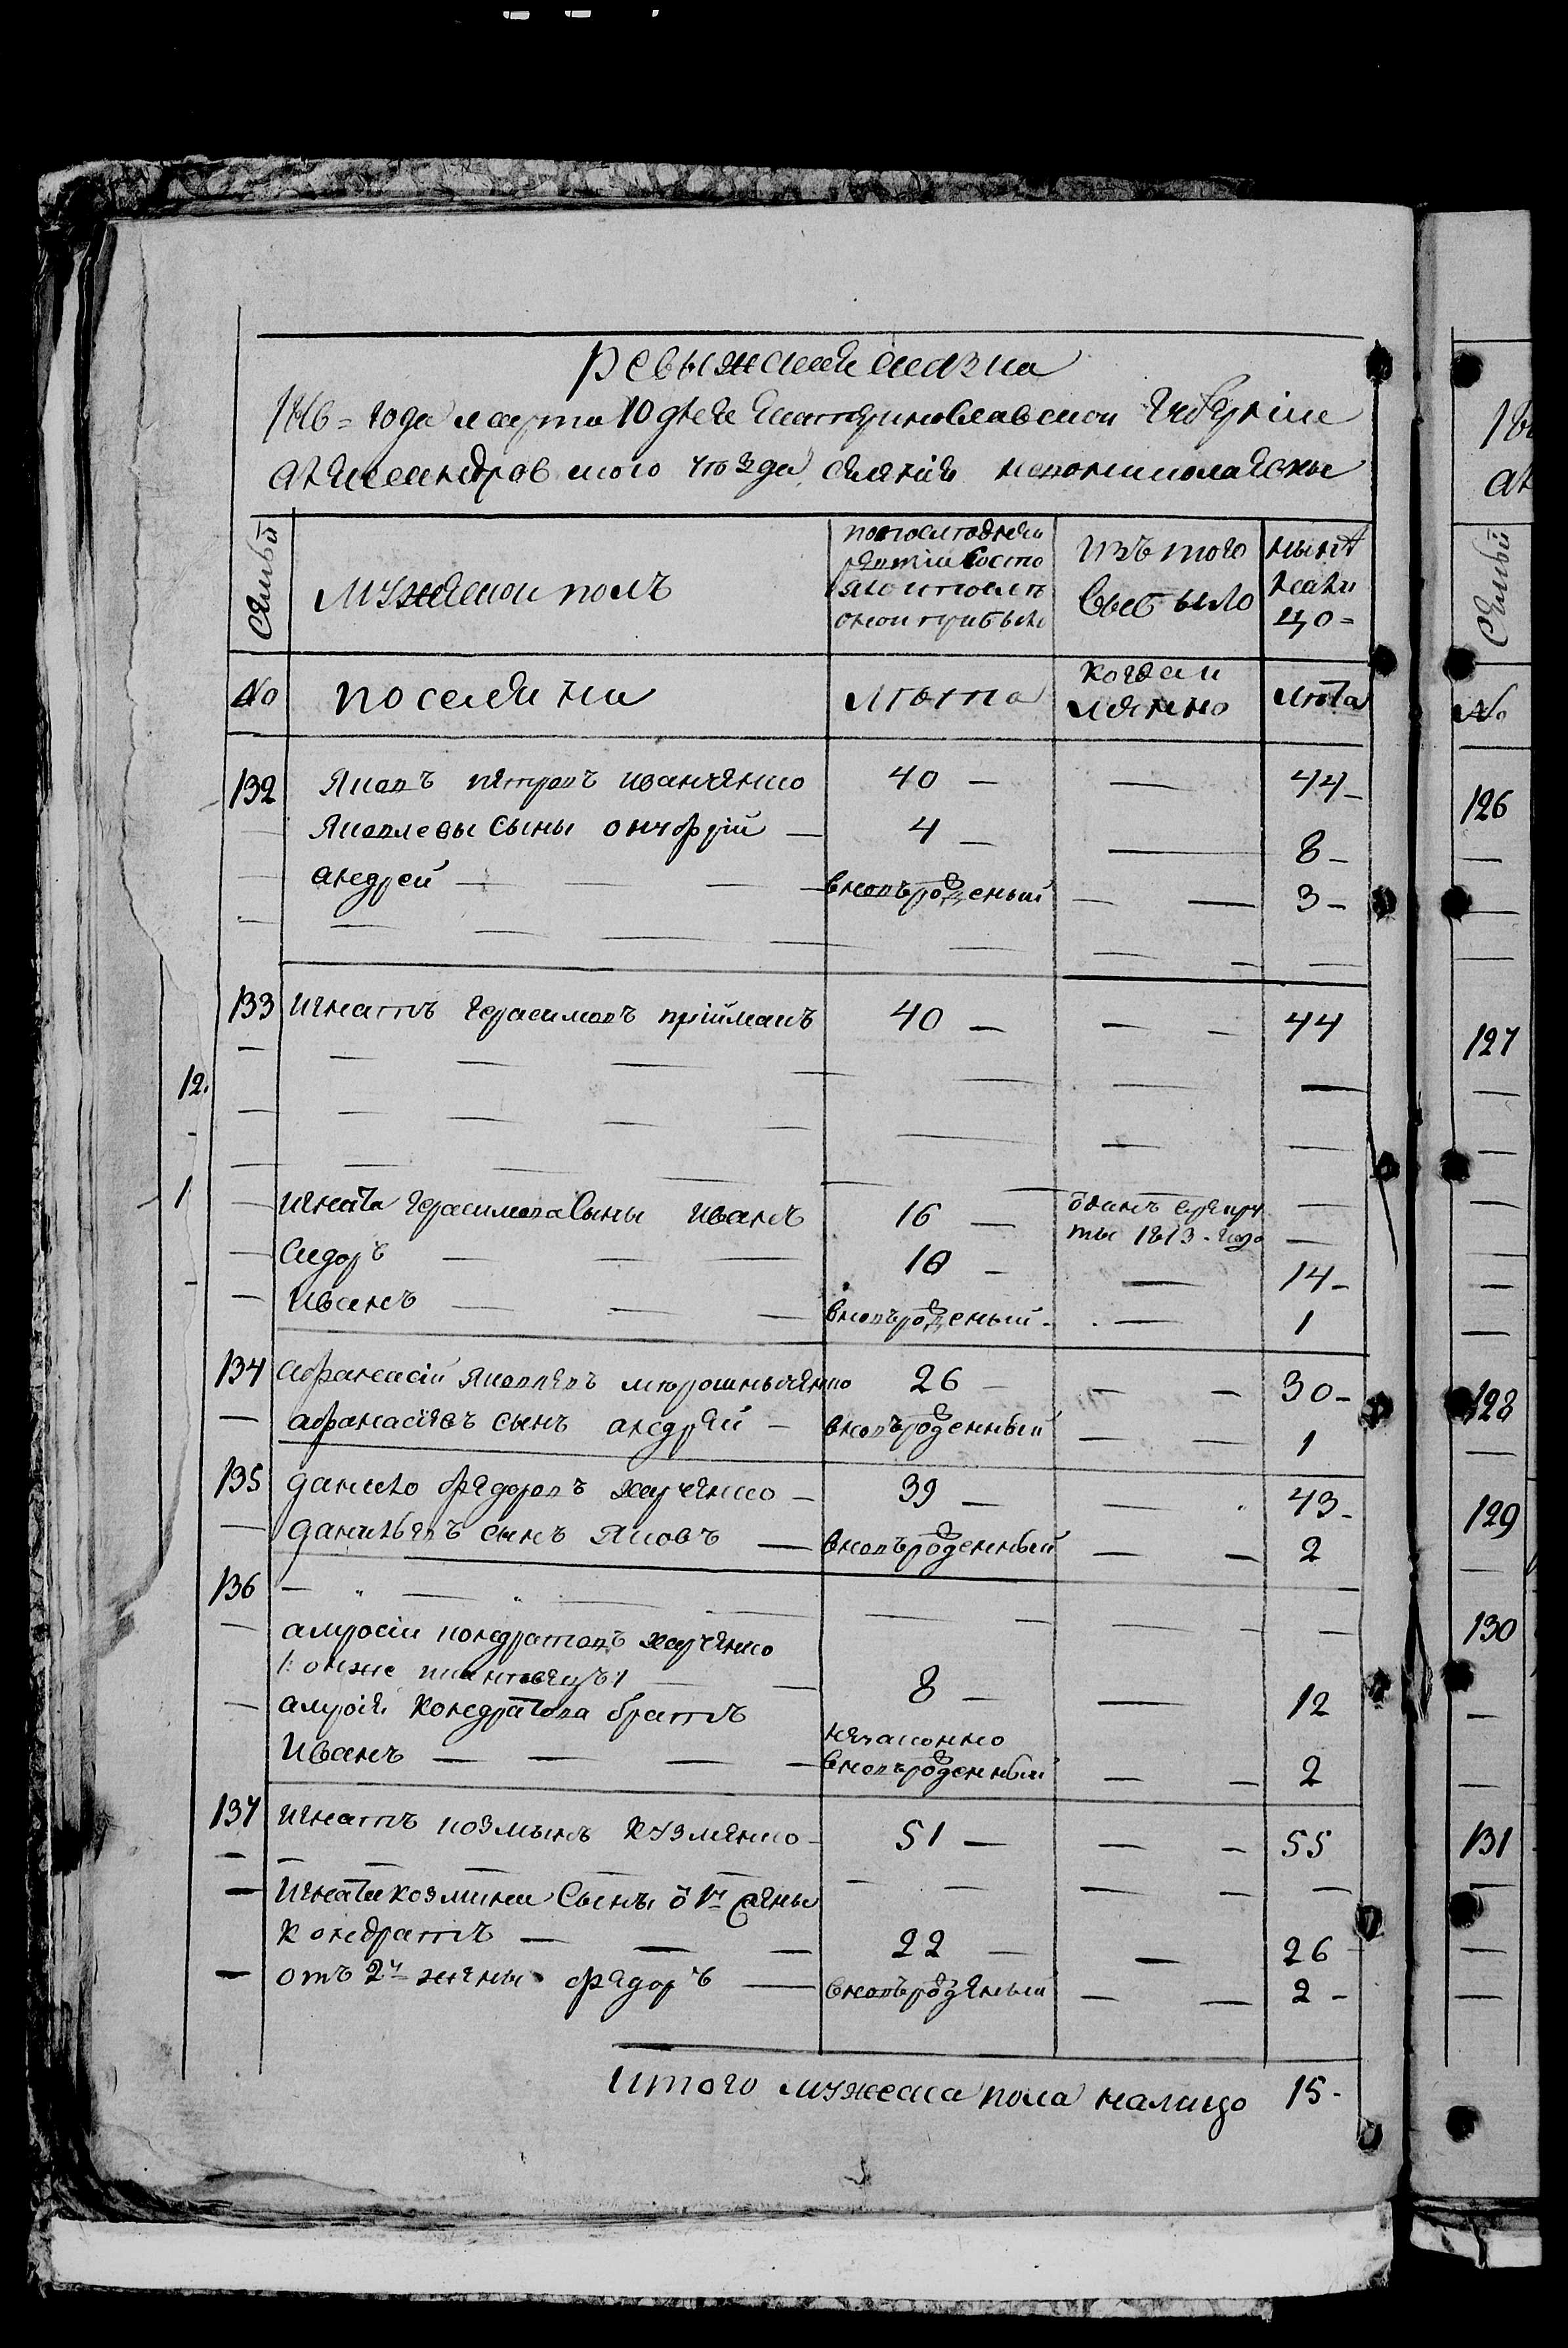 Ревыжская сказка
1816 = года марта 10 дня Екатериновславской Губерніи
Александровского уезда селения
Семьи
мужеской полъ
по последней
ревизіи состо
яло и после
оной прибыло
изъ того
выбыло
ныне
нали
цо =
№
поселяни
лѣта
когда и
лѣта
132
Яковъ петровъ иванченко
40 —
—
44 —
Яковлевы Сыны онуфрій —
4 —
—
8 —
андрей —
вновьроденый
—
3 —
133
игнатъ герасимовъ прійманъ
40 —
—
44
12.
1
игната герасимова Сыны иванъ
16 —
1813 - года
—
Сидоръ
10 —
—
14 —
Иванъ
вновьроденый
—
1
134
афанасій яковлевъ мирошныченко
26 —
—
30 —
афанасіевъ сынъ андрей —
вновьроденный
—
1
135
данило федоровъ харченко —
39 —
—
43 —
данильевъ сынъ яковъ —
вновьроденный
—
2
136
амросіи кондратовъ харченко
/: онже
8 —
—
12
амросія кондратова братъ
незаконно
Иванъ —
вновьроденный
—
2
137
игнатъ козмынъ кузменко —
51 —
—
55
Игната козмина Сыны о 1й жены
кондратъ —
22 —
—
26
отъ 2й жены федоръ —
вновьроденый
—
2 —
итого мужеска пола налицо 15 -
18
ал
Семьи
№
126
127
128
129
130
131